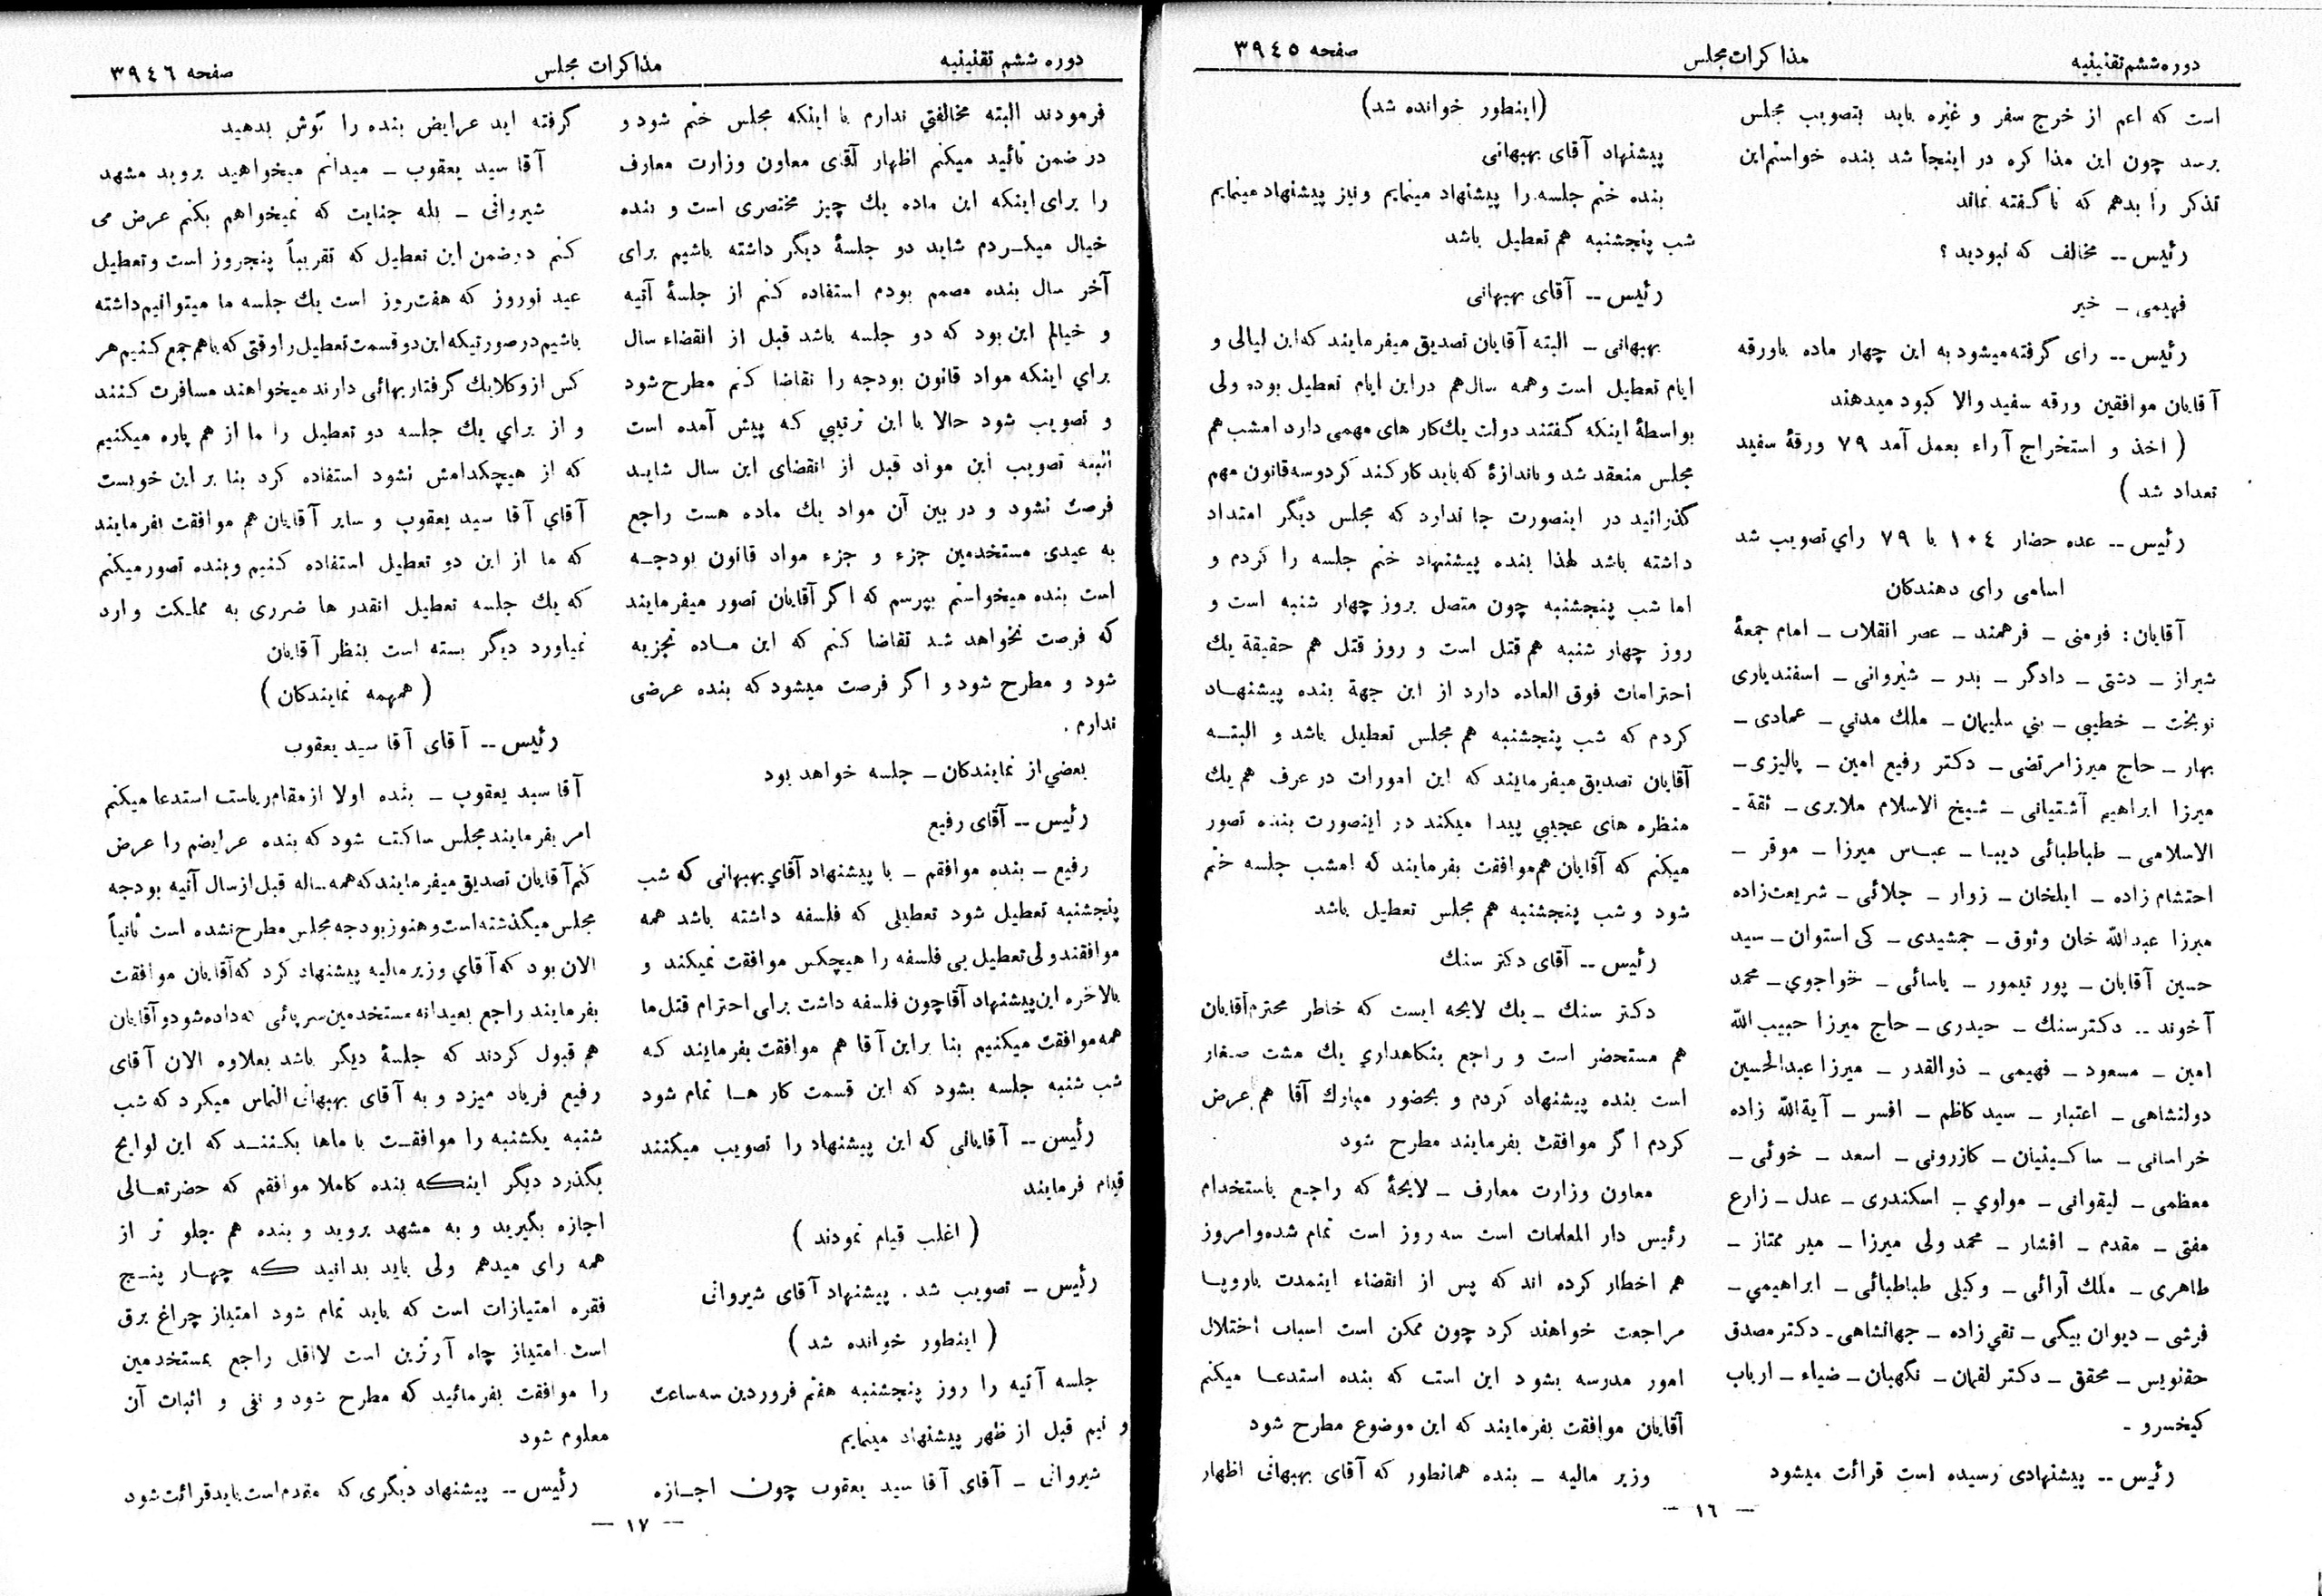 دوره ششم تقنینیه
مذاکرات مجلس
صفحه ۳۹٤٥
است که اعم از خرج سفر و غیره باید بتصویب مجلس
برسد چون این مذاکره در اینجا شد بنده خواستم این
تذکر را بدهم که ناگفته نماند
رئیس -- مخالف که نبودید ؟
فهیمی - خیر
رئیس -- رای گرفته میشود به این چهار ماده باورقه
آقایان موافقین ورقه سفید والا کبود میدهند
( اخذ و استخراج آراء بعمل آمد ۷۹ ورقهٔ سفید
تعداد شد )
رئیس -- عده حضار ۱۰٤ با ۷۹ رای تصویب شد
اسامی رای دهندگان
آقایان : فرمنی - فرهمند - عصر انقلاب - امام جمعهٔ
شیراز - دشتی - دادگر - بدر - شیروانی - اسفندیاری
نوبخت - خطیبی - بنی سلیمان - ملك مدنی - عمادی -
بهار - حاج میرزا مرتضی - دکتر رفیع امین - پالیزی -
میرزا ابراهیم آشتیانی - شیخ الاسلام ملایری - ثقة -
الاسلامی - طباطبائی دیبا - عباس میرزا - موقر -
احتشام زاده - ایلخان - زوار - جلائی - شریعت زاده
میرزا عبدالله خان وثوق - جمشیدی - کی استوان - سید
حسین آقایان - پور تیمور - یاسائی - خواجوی - محمد
آخوند -- دکتر سنك - حیدری - حاج میرزا حبیب الله
امین - مسعود - فهیمی - ذوالقدر - میرزا عبدالحسین
دولتشاهی - اعتبار - سید کاظم - افسر - آیة الله زاده
خراسانی - ساکینیان - کازرونی - اسعد - خوئی -
معظمی - لیقوانی - مولوی - اسکندری - عدل - زارع
مفتی - مقدم - افشار - محمد ولی میرزا - میر ممتاز -
طاهری - ملك آرائی - وکیلی طباطبائی - ابراهیمی -
فرشی - دیوان بیگی - تقی زاده - جهانشاهی - دکتر مصدق
حقنویس - محقق - دکتر لقمان - نگهبان - ضیاء - ارباب
کیخسرو -
رئیس -- پیشنهادی رسیده است قرائت میشود
(اینطور خوانده شد)
پیشنهاد آقای بهبهانی
بنده ختم جلسه را پیشنهاد مینمایم ونیز پیشنهاد مینمایم
شب پنجشنبه هم تعطیل باشد
رئیس -- آقای بهبهانی
بهبهانی - البته آقایان تصدیق میفرمایند که این لیالی و
ایام تعطیل است وهمه سال هم در این ایام تعطیل بوده ولی
بواسطهٔ اینکه گفتند دولت یك کار های مهمی دارد امشب هم
مجلس منعقد شد و باندازهٔ که باید کار کند کرد و سه قانون مهم
گذرانید در اینصورت جا ندارد که مجلس دیگر امتداد
داشته باشد لهذا بنده پیشنهاد ختم جلسه را کردم و
اما شب پنجشنبه چون متصل بروز چهار شنبه است و
روز چهار شنبه هم قتل است و روز قتل هم حقیقة یك
احترامات فوق العاده دارد از این جهة بنده پیشنهاد
کردم که شب پنجشنبه هم مجلس تعطیل باشد و البته
آقایان تصدیق میفرمایند که این امورات در عرف هم یك
منظره های عجیبی پیدا میکند در اینصورت بنده تصور
میکنم که آقایان هم موافقت بفرمایند که امشب جلسه ختم
شود و شب پنجشنبه هم مجلس تعطیل باشد
رئیس -- آقای دکتر سنك
دکتر سنك - یك لایحه ایست که خاطر محترم آقایان
هم مستحضر است و راجع بنگاهداری یك مشت صغار
است بنده پیشنهاد کردم و بحضور مبارك آقا هم عرض
کردم اگر موافقت بفرمایند مطرح شود
معاون وزارت معارف - لایحهٔ که راجع باستخدام
رئیس دار المعلمات است سه روز است تمام شده و امروز
هم اخطار کرده اند که پس از انقضاء اینمدت باروپا
مراجعت خواهند کرد چون ممکن است اسباب اختلال
امور مدرسه بشود این است که بنده استدعا میکنم
آقایان موافقت بفرمایند که این موضوع مطرح شود
وزیر مالیه - بنده همانطور که آقای بهبهانی اظهار
- ۱٦ -
دوره ششم تقنینیه
مذاکرات مجلس
صفحه ۳۹٤٦
فرمودند البته مخالفتی ندارم با اینکه مجلس ختم شود و
در ضمن تائید میکنم اظهار آقای معاون وزارت معارف
را برای اینکه این ماده یك چیز مختصری است و بنده
خیال میکردم شاید دو جلسهٔ دیگر داشته باشیم برای
آخر سال بنده مصمم بودم استفاده کنم از جلسهٔ آتیه
و خیالم این بود که دو جلسه باشد قبل از انقضاء سال
برای اینکه مواد قانون بودجه را تقاضا کنم مطرح شود
و تصویب شود حالا با این ترتیبی که پیش آمده است
البته تصویب این مواد قبل از انقضای این سال شاید
فرصت نشود و در بین آن مواد یك ماده هست راجع
به عیدی مستخدمین جزء و جزء مواد قانون بودجه
است بنده میخواستم بپرسم که اگر آقایان تصور میفرمایند
که فرصت نخواهد شد تقاضا کنم که این ماده تجزیه
شود و مطرح شود و اگر فرصت میشود که بنده عرضی
ندارم .
بعضی از نمایندگان - جلسه خواهد بود
رئیس -- آقای رفیع
رفیع - بنده موافقم - با پیشنهاد آقای بهبهانی که شب
پنجشنبه تعطیل شود تعطیلی که فلسفه داشته باشد همه
موافقند ولی تعطیل بی فلسفه را هیچکس موافقت نمیکند و
بالاخره این پیشنهاد آقا چون فلسفه داشت برای احترام قتل ما
همه موافقت میکنیم بنا بر این آقا هم موافقت بفرمایند که
شب شنبه جلسه بشود که این قسمت کار ها تمام شود
رئیس -- آقایانی که این پیشنهاد را تصویب میکنند
قیام فرمایند
( اغلب قیام نمودند )
رئیس - تصویب شد . پیشنهاد آقای شیروانی
( اینطور خوانده شد )
جلسه آتیه را روز پنجشنبه هفتم فروردین سه ساعت
و نیم قبل از ظهر پیشنهاد مینمایم
شیروانی - آقای آقا سید یعقوب چون اجازه
گرفته اید عرایض بنده را گوش بدهید
آقا سید یعقوب - میدانم میخواهید بروید مشهد
شیروانی - بله جنایت که نمیخواهم بکنم عرض می
کنم در ضمن این تعطیل که تقریباً پنجروز است و تعطیل
عید نوروز که هفت روز است یك جلسه ما میتوانیم داشته
باشیم در صورتیکه این دو قسمت تعطیل را وقتی که باهم جمع کنیم هر
کس از وکلا یك گرفتاریهائی دارند میخواهند مسافرت کنند
و از برای یك جلسه دو تعطیل را ما از هم پاره میکنیم
که از هیچکدامش نشود استفاده کرد بنا بر این خوبست
آقای آقا سید یعقوب و سایر آقایان هم موافقت بفرمایند
که ما از این دو تعطیل استفاده کنیم و بنده تصور میکنم
که یك جلسه تعطیل انقدر ها ضرری به مملکت وارد
نمیاورد دیگر بسته است بنظر آقایان
( همهمه نمایندگان )
رئیس -- آقای آقا سید یعقوب
آقا سید یعقوب - بنده اولا از مقام ریاست استدعا میکنم
امر بفرمایند مجلس ساکت شود که بنده عرایضم را عرض
کنم آقایان تصدیق میفرمایند که همه ساله قبل از سال آتیه بودجه
مجلس میگذشته است و هنوز بودجه مجلس مطرح نشده است ثانیاً
الان بود که آقای وزیر مالیه پیشنهاد کرد که آقایان موافقت
بفرمایند راجع بعیدانه مستخدمین سرپائی که داده شود و آقایان
هم قبول کردند که جلسهٔ دیگر باشد بعلاوه الان آقای
رفیع فریاد میزد و به آقای بهبهانی التماس میکرد که شب
شنبه یکشنبه را موافقت با ماها بکنند که این لوایح
بگذرد دیگر اینکه بنده کاملا موافقم که حضرتعالی
اجازه بگیرید و به مشهد بروید و بنده هم جلو تر از
همه رای میدهم ولی باید بدانید که چهار پنج
فقره امتیازات است که باید تمام شود امتیاز چراغ برق
است امتیاز چاه آرتزین است لااقل راجع بمستخدمین
را موافقت بفرمائید که مطرح شود و نفی و اثبات آن
معلوم شود
رئیس -- پیشنهاد دیگری که مقدم است باید قرائت شود
- ۱۷ -